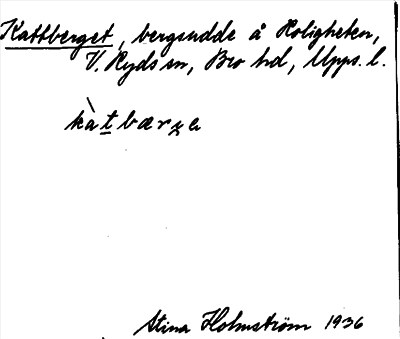 Kattberget, bergsudde å Holigheten,
V. Ryds sn, Bro hd, Upps. l.
kàtbærʒe
Stina Holmström 1936